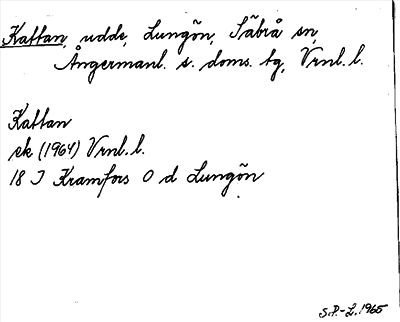 Kattan, udde, Lungön, Säbrå sn,
Ångermanl. s. doms. tg, Vrnl. l.
Kattan
ek (1964) Vrnl. l.
18 J Kramfors O d Lungön
S.P.-L. 1965